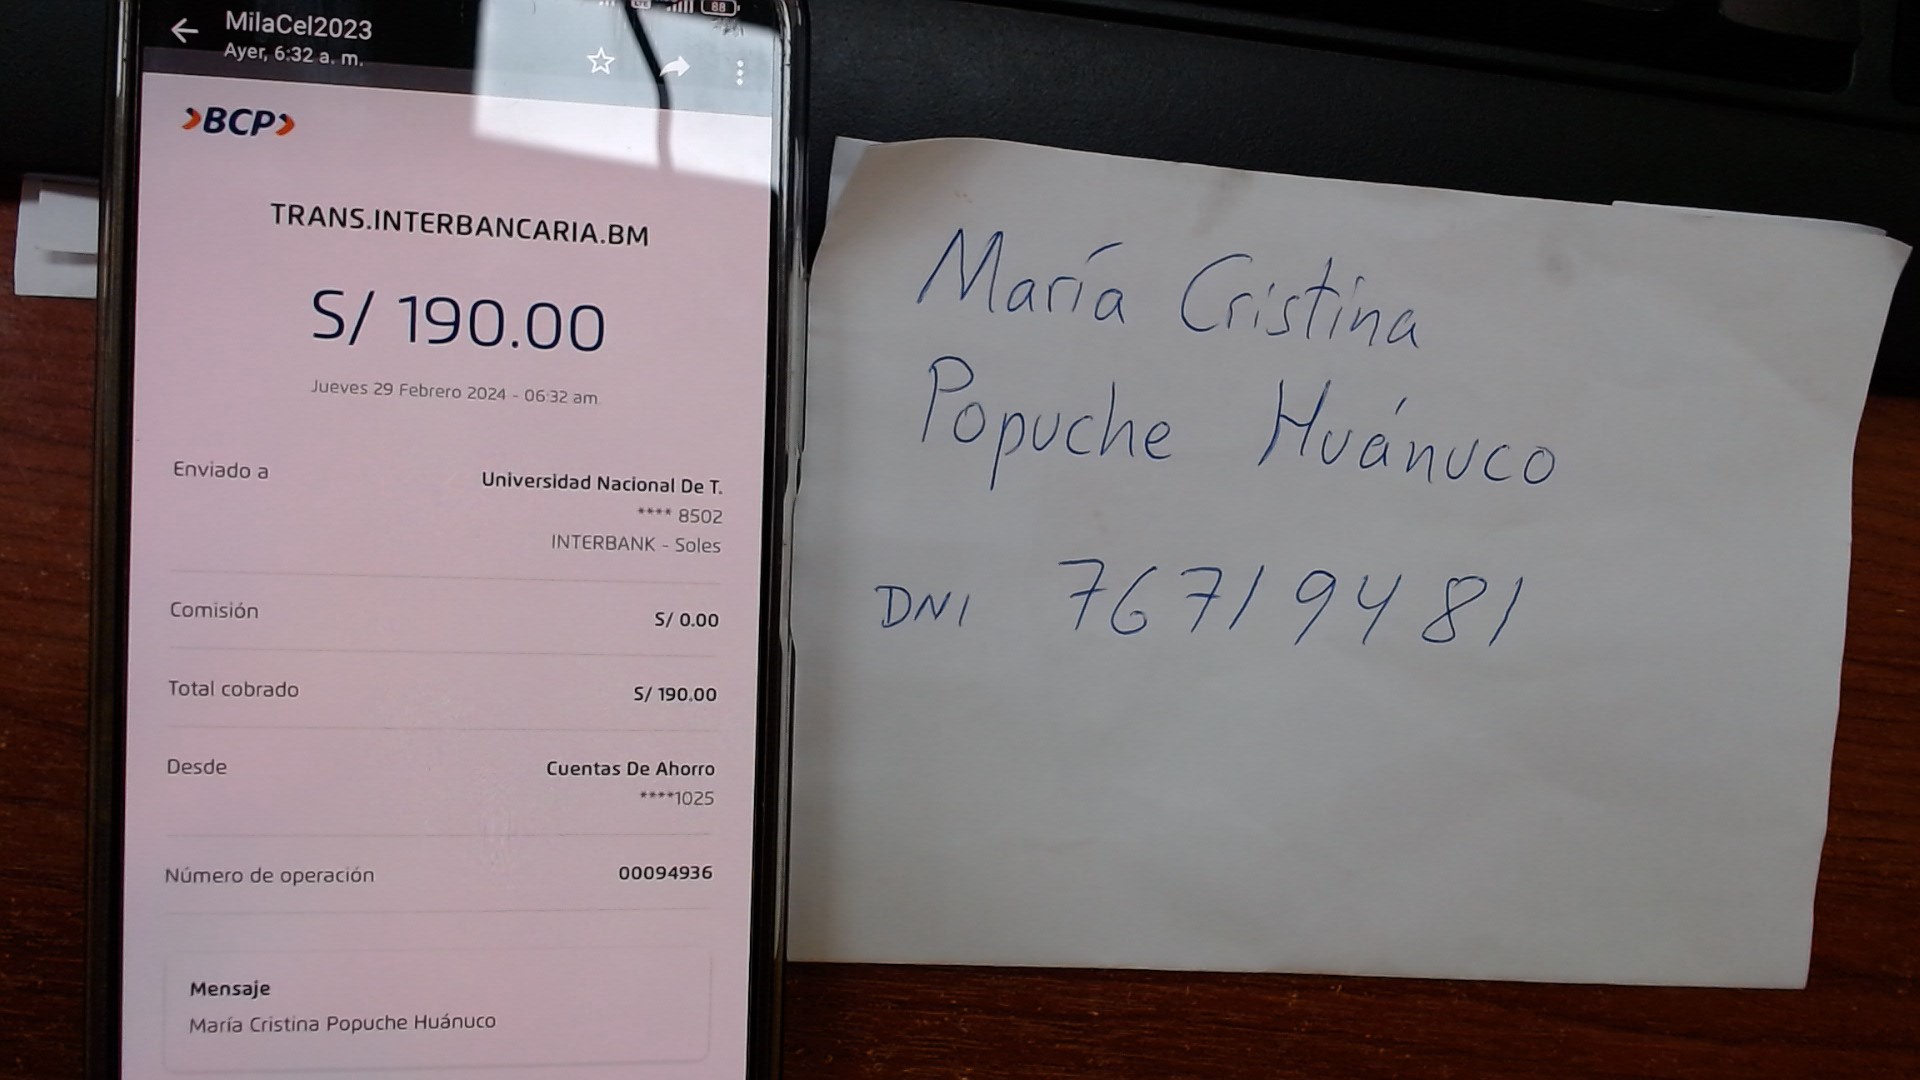 MilaCel2023
Ayer, 6:32 a. m.
LTE
88
BCP
TRANS.INTERBANCARIA.BM
S/ 190.00
Jueves 29 Febrero 2024 - 06:32 am
Enviado a
Universidad Nacional De T.
**** 8502
INTERBANK - Soles
Comisión
S/ 0.00
Total cobrado
S/ 190.00
Desde
Cuentas De Ahorro
****1025
Número de operación
00094936
Mensaje
María Cristina Popuche Huánuco
María Cristina
Popuche Huánuco
DNI 76719481